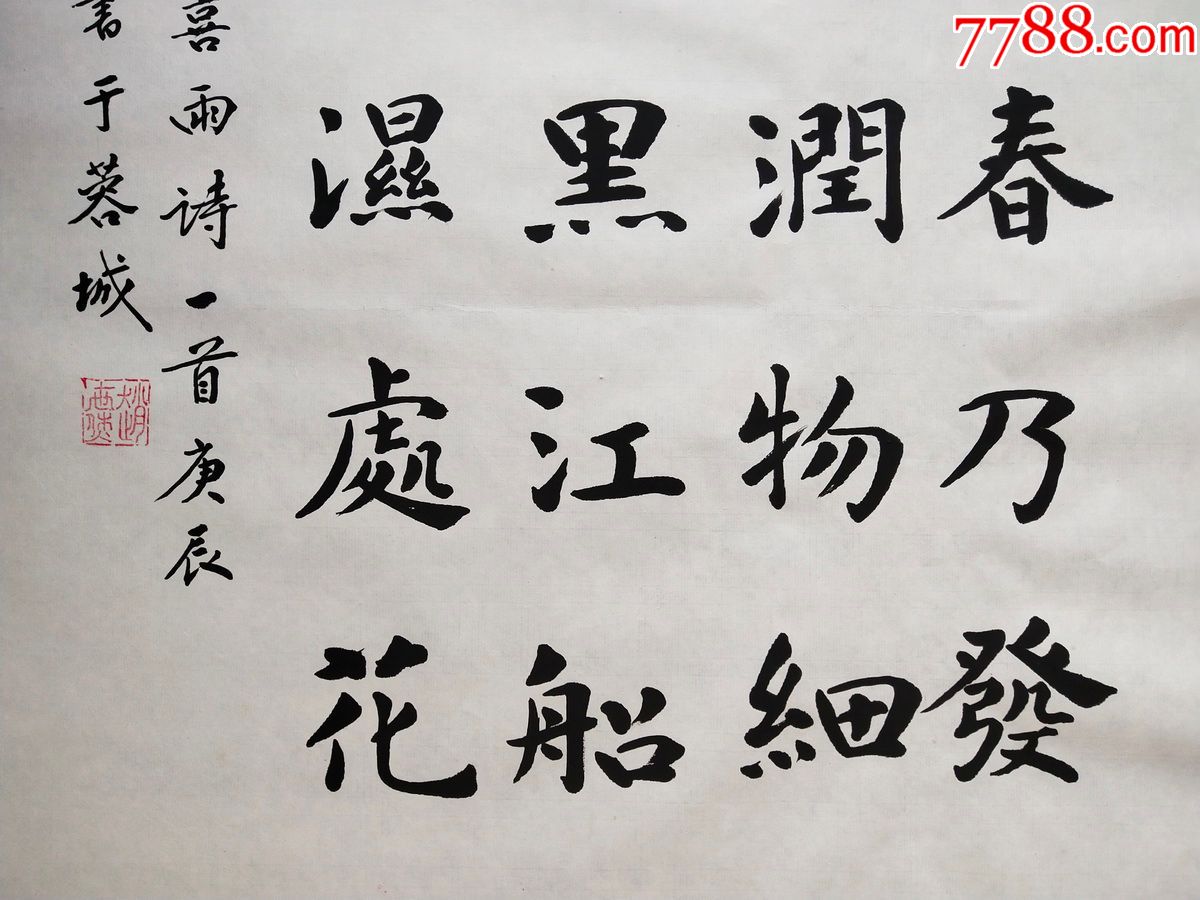 7788.com
春乃發
潤物細
黑江船
濕處花
喜雨詩一首庚辰
書于蓉城